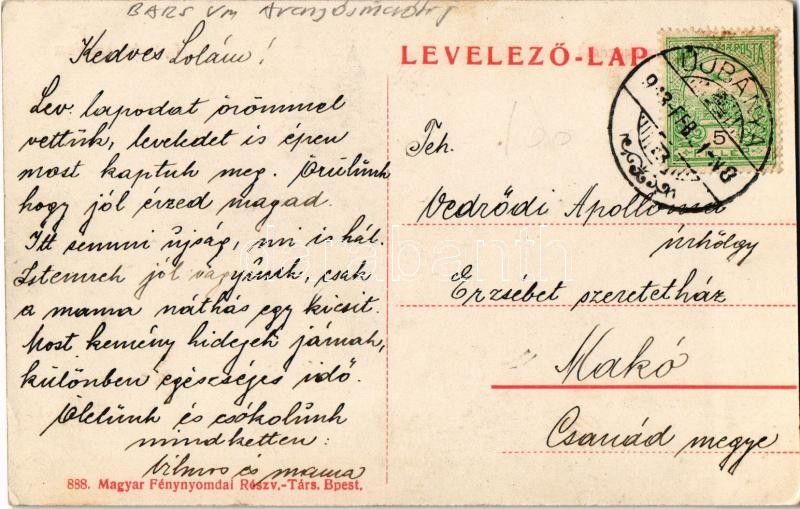 BARS vm Aranyosmarót
Kedves Lolám!
Lev. lapodat örömmel
vettük, leveledet is épen
most kaptuk meg. Örülünk
hogy jól érzed magad.
Itt semmi újság, mi is hál.
Istennek jól vagyunk, csak
a mama náthás egy kicsit.
Most kemény hidegek járnak,
különben egészséges idő.
Ölelünk és csókolunk
mindketten:
Vilmos és mama
888. Magyar Fénynyomdai Részv.-Társ. Bpest.
LEVELEZŐ-LAP
Teh.
Vedrődi Apollonia
úrhölgy
Erzsébet szeretetház
Makó
Csanád megye
ÚJBÁNYA
913 FEB. 21-V8
5
darabanth